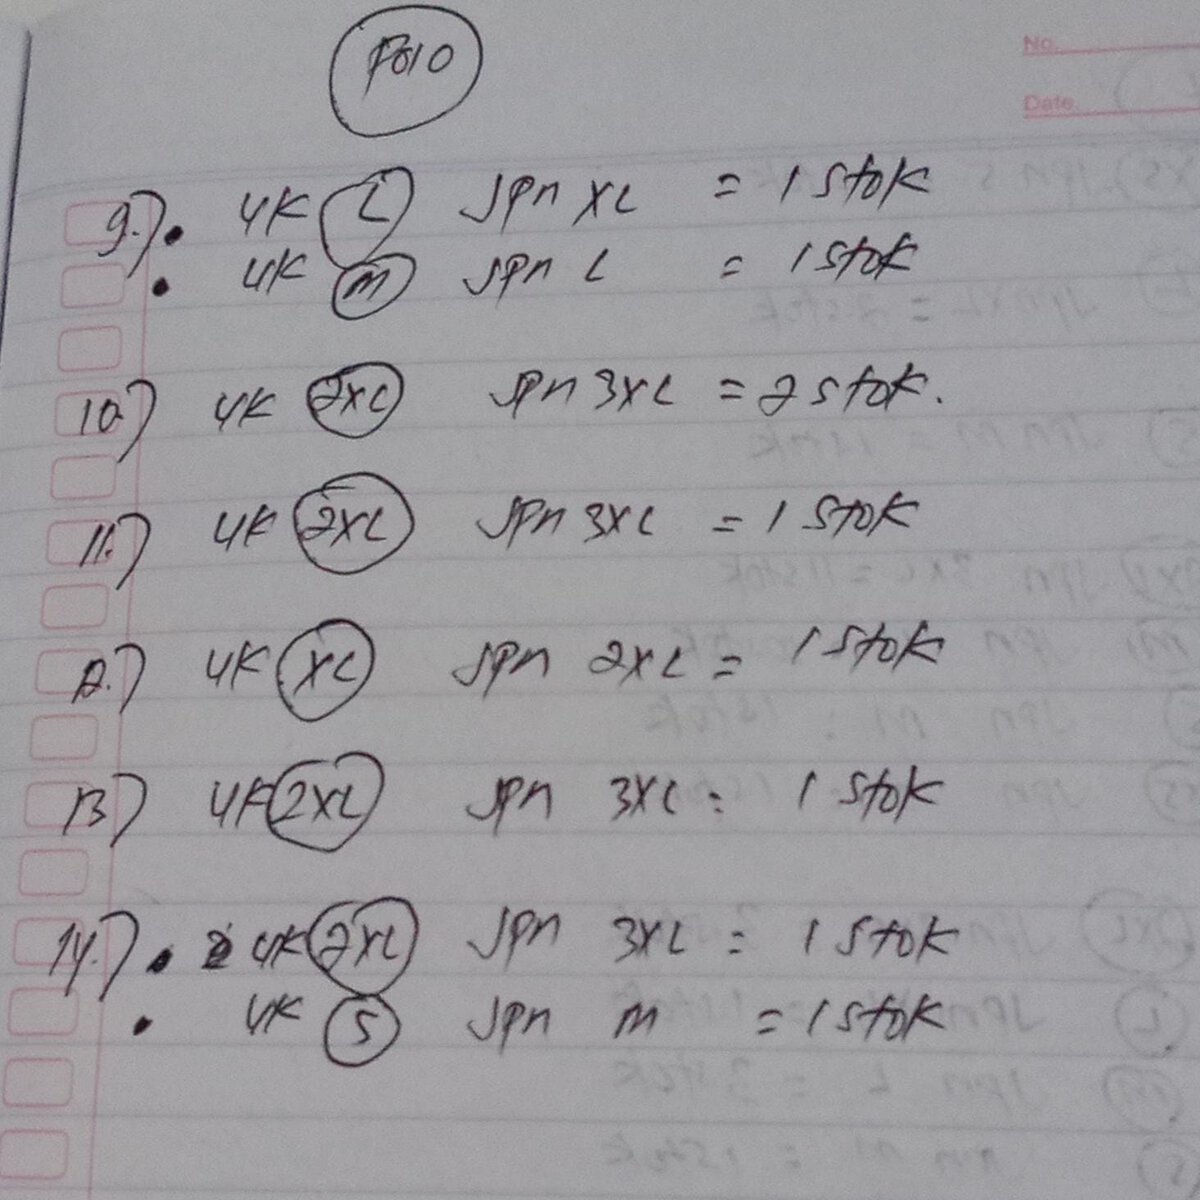 Polo
No.
Date.
9.) • UK L Jpn XL = 1 Stok
• UK M Jpn L = 1 Stok
10) UK 2XL Jpn 3XL = 2 Stok.
11.) UK 2XL Jpn 3XL = 1 Stok
12.) UK XL Jpn 2XL = 1 Stok
13) UK 2XL Jpn 3XL = 1 Stok
14.) • UK 2XL Jpn 3XL = 1 Stok
• UK S Jpn M = 1 Stok